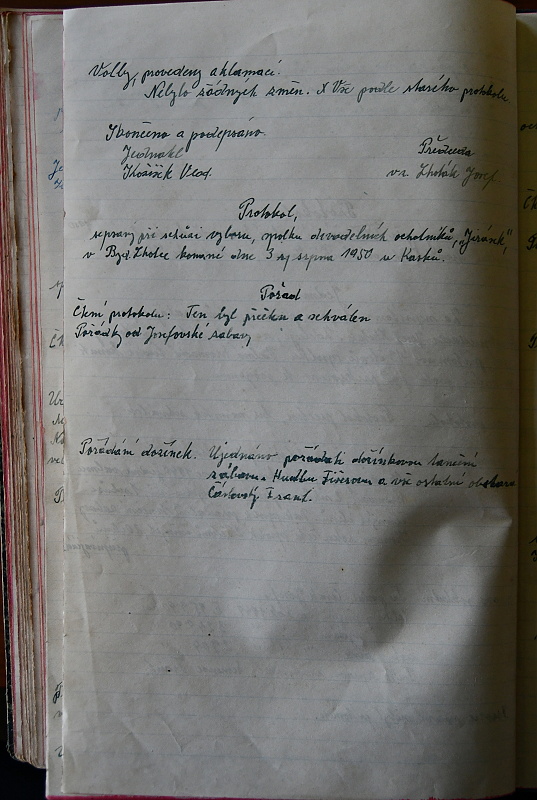 Volby, provedeny aklamací.
Nebylo žádných změn. X Vše podle starého protokolu
Skončeno a podepsáno.
Jednatel Předseda
Vlad. v.r. Josef
Protokol,
sepsaný při schůzi výboru, spolku divadelních ochotníků, "Jirásek",
v Byd. Lhotce konané dne 3 srpna 1950 u Karků.
Pořad
Čtení protokolu: Ten byl přečten a schválen
Pořádky od Josefovské zábavy
Pořádání dožínek. Ujednáno pořádati dožínkovou taneční
zábavu. Hudbu a vše ostatní obstará
Frant.